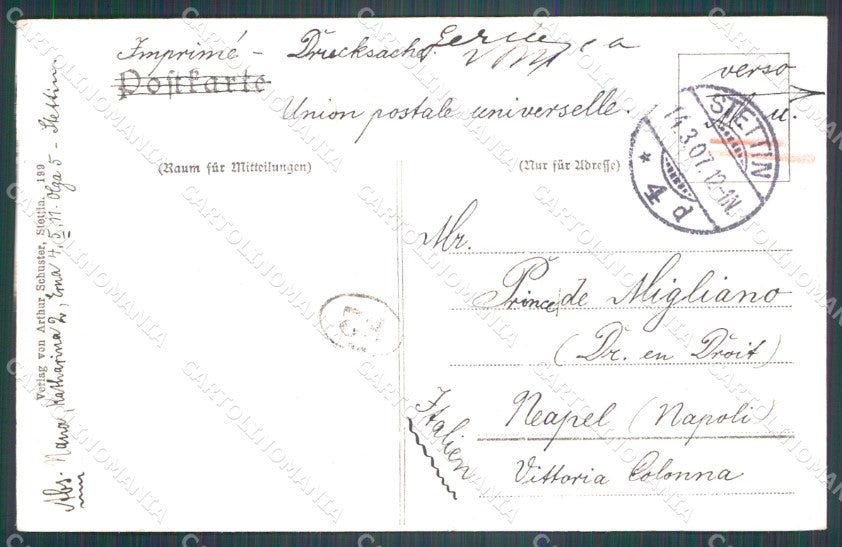 Imprimé - Drucksache.
Postkarte
Union postale universelle.
verso
u.
STETTIN
14.3.07.12-1N.
* 4 d
(Raum für Mitteilungen)
(Nur für Adresse)
Mr.
Prince de Migliano
(Dr. en Droit)
Neapel (Napoli)
Vittoria Colonna
Italien
Verlag von Arthur Schuster, Stettin. 199
Abs.
Olga 5 - Stettin
CARTOLINOMANIA